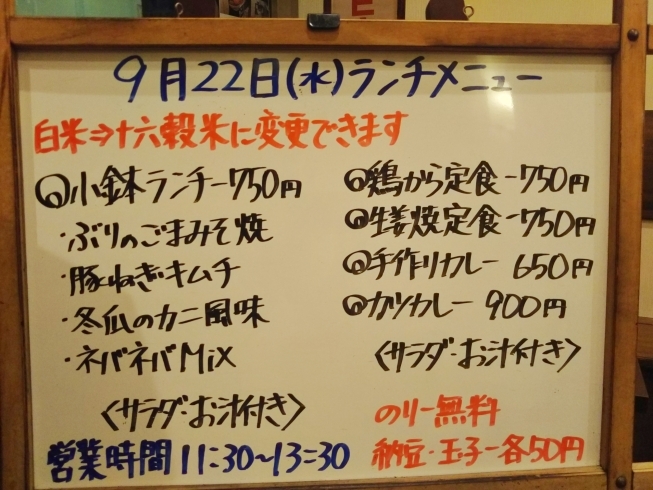 9月22日(水)ランチメニュー
白米⇒十六穀米に変更できます
◎小鉢ランチー750円
・ぶりのごまみそ焼
・豚ねぎキムチ
・冬瓜のカニ風味
・ネバネバMix
〈サラダ・お汁付き〉
営業時間11:30～13:30
◎鶏から定食ー750円
◎生姜焼定食ー750円
◎手作りカレー 650円
◎カツカレー 900円
〈サラダ・お汁付き〉
のりー無料
納豆・玉子ー各50円